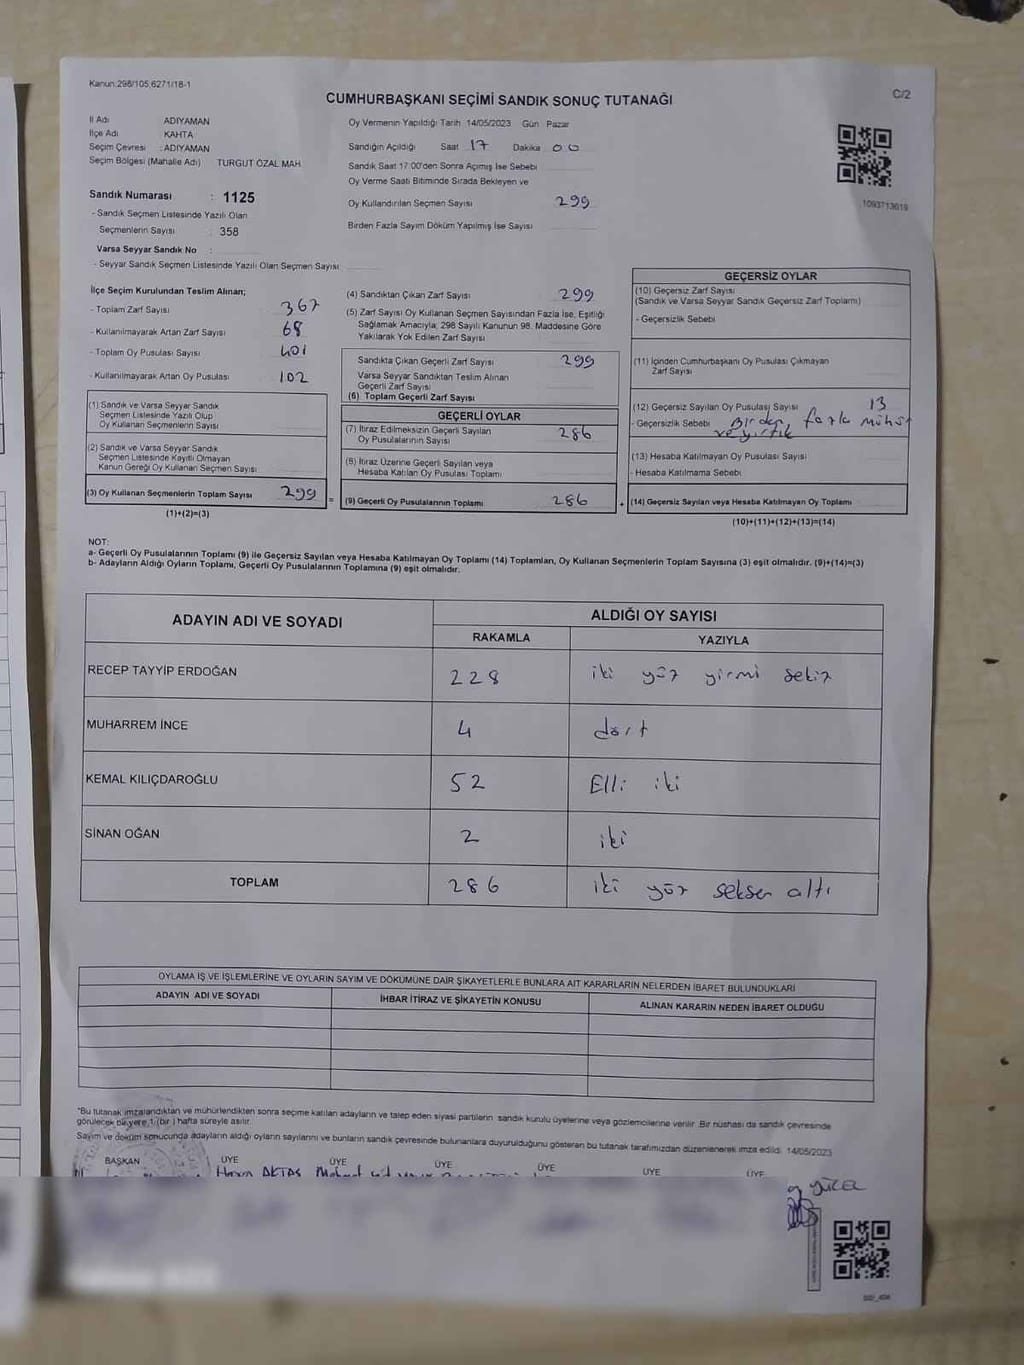 Kanun:298/105,6271/18-1
C/2
CUMHURBAŞKANI SEÇİMİ SANDIK SONUÇ TUTANAĞI
İl Adı ADIYAMAN
İlçe Adı KAHTA
Seçim Çevresi : ADIYAMAN
Seçim Bölgesi (Mahalle Adı) TURGUT ÖZAL MAH.
Sandık Numarası : 1125
- Sandık Seçmen Listesinde Yazılı Olan
Seçmenlerin Sayısı : 358
Varsa Seyyar Sandık No :
- Seyyar Sandık Seçmen Listesinde Yazılı Olan Seçmen Sayısı
Oy Vermenin Yapıldığı Tarih 14/05/2023 Gün Pazar
Sandığın Açıldığı Saat 17 Dakika 00
Sandık Saat 17:00'den Sonra Açımış İse Sebebi
Oy Verme Saati Bitiminde Sırada Bekleyen ve
Oy Kullandırılan Seçmen Sayısı 299
Birden Fazla Sayım Döküm Yapılmış İse Sayısı
1093713619
İlçe Seçim Kurulundan Teslim Alınan;
- Toplam Zarf Sayısı 367
- Kullanılmayarak Artan Zarf Sayısı 68
- Toplam Oy Pusulası Sayısı 401
- Kullanılmayarak Artan Oy Pusulası 102
(1) Sandık ve Varsa Seyyar Sandık
Seçmen Listesinde Yazılı Olup
Oy Kullanan Seçmenlerin Sayısı
(2) Sandık ve Varsa Seyyar Sandık
Seçmen Listesinde Kayıtlı Olmayan
Kanun Gereği Oy Kullanan Seçmen Sayısı
(3) Oy Kullanan Seçmenlerin Toplam Sayısı 299
(1)+(2)=(3)
(4) Sandıktan Çıkan Zarf Sayısı 299
(5) Zarf Sayısı Oy Kullanan Seçmen Sayısından Fazla İse, Eşitliği
Sağlamak Amacıyla; 298 Sayılı Kanunun 98. Maddesine Göre
Yakılarak Yok Edilen Zarf Sayısı
Sandıkta Çıkan Geçerli Zarf Sayısı 299
Varsa Seyyar Sandıktan Teslim Alınan
Geçerli Zarf Sayısı
(6) Toplam Geçerli Zarf Sayısı
GEÇERLİ OYLAR
(7) İtiraz Edilmeksizin Geçerli Sayılan
Oy Pusulalarının Sayısı 286
(8) İtiraz Üzerine Geçerli Sayılan veya
Hesaba Katılan Oy Pusulası Toplamı
= (9) Geçerli Oy Pusulalarının Toplamı 286 +
GEÇERSİZ OYLAR
(10) Geçersiz Zarf Sayısı
(Sandık ve Varsa Seyyar Sandık Geçersiz Zarf Toplamı)
- Geçersizlik Sebebi
(11) İçinden Cumhurbaşkanı Oy Pusulası Çıkmayan
Zarf Sayısı
(12) Geçersiz Sayılan Oy Pusulası Sayısı 13
- Geçersizlik Sebebi Birden fazla mühür
ve yırtık
(13) Hesaba Katılmayan Oy Pusulası Sayısı
- Hesaba Katılmama Sebebi
(14) Geçersiz Sayılan veya Hesaba Katılmayan Oy Toplamı
(10)+(11)+(12)+(13)=(14)
NOT:
a- Geçerli Oy Pusulalarının Toplamı (9) ile Geçersiz Sayılan veya Hesaba Katılmayan Oy Toplamı (14) Toplamları, Oy Kullanan Seçmenlerin Toplam Sayısına (3) eşit olmalıdır. (9)+(14)=(3)
b- Adayların Aldığı Oyların Toplamı, Geçerli Oy Pusulalarının Toplamına (9) eşit olmalıdır.
ADAYIN ADI VE SOYADI
ALDIĞI OY SAYISI
RAKAMLA YAZIYLA
RECEP TAYYİP ERDOĞAN 228 iki yüz yirmi sekiz
MUHARREM İNCE 4 dört
KEMAL KILIÇDAROĞLU 52 Elli iki
SİNAN OĞAN 2 iki
TOPLAM 286 iki yüz seksen altı
OYLAMA İŞ VE İŞLEMLERİNE VE OYLARIN SAYIM VE DÖKÜMÜNE DAİR ŞİKAYETLERLE BUNLARA AİT KARARLARIN NELERDEN İBARET BULUNDUKLARI
ADAYIN ADI VE SOYADI İHBAR İTİRAZ VE ŞİKAYETİN KONUSU ALINAN KARARIN NEDEN İBARET OLDUĞU
"Bu tutanak imzalandıktan ve mühürlendikten sonra seçime katılan adayların ve talep eden siyasi partilerin sandık kurulu üyelerine veya gözlemcilerine verilir. Bir nüshası da sandık çevresinde
görülecek bir yere 1 (bir ) hafta süreyle asılır.
Sayım ve döküm sonucunda adayların aldığı oyların sayılarını ve bunların sandık çevresinde bulunanlara duyurulduğunu gösteren bu tutanak tarafımızdan düzenlenerek imza edildi. 14/05/2023
BAŞKAN ÜYE ÜYE ÜYE ÜYE ÜYE ÜYE
AKTAŞ
YÜCEL